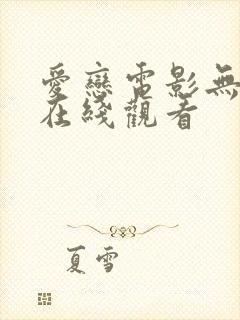 愛戀電影無
在綫觀看
夏雪